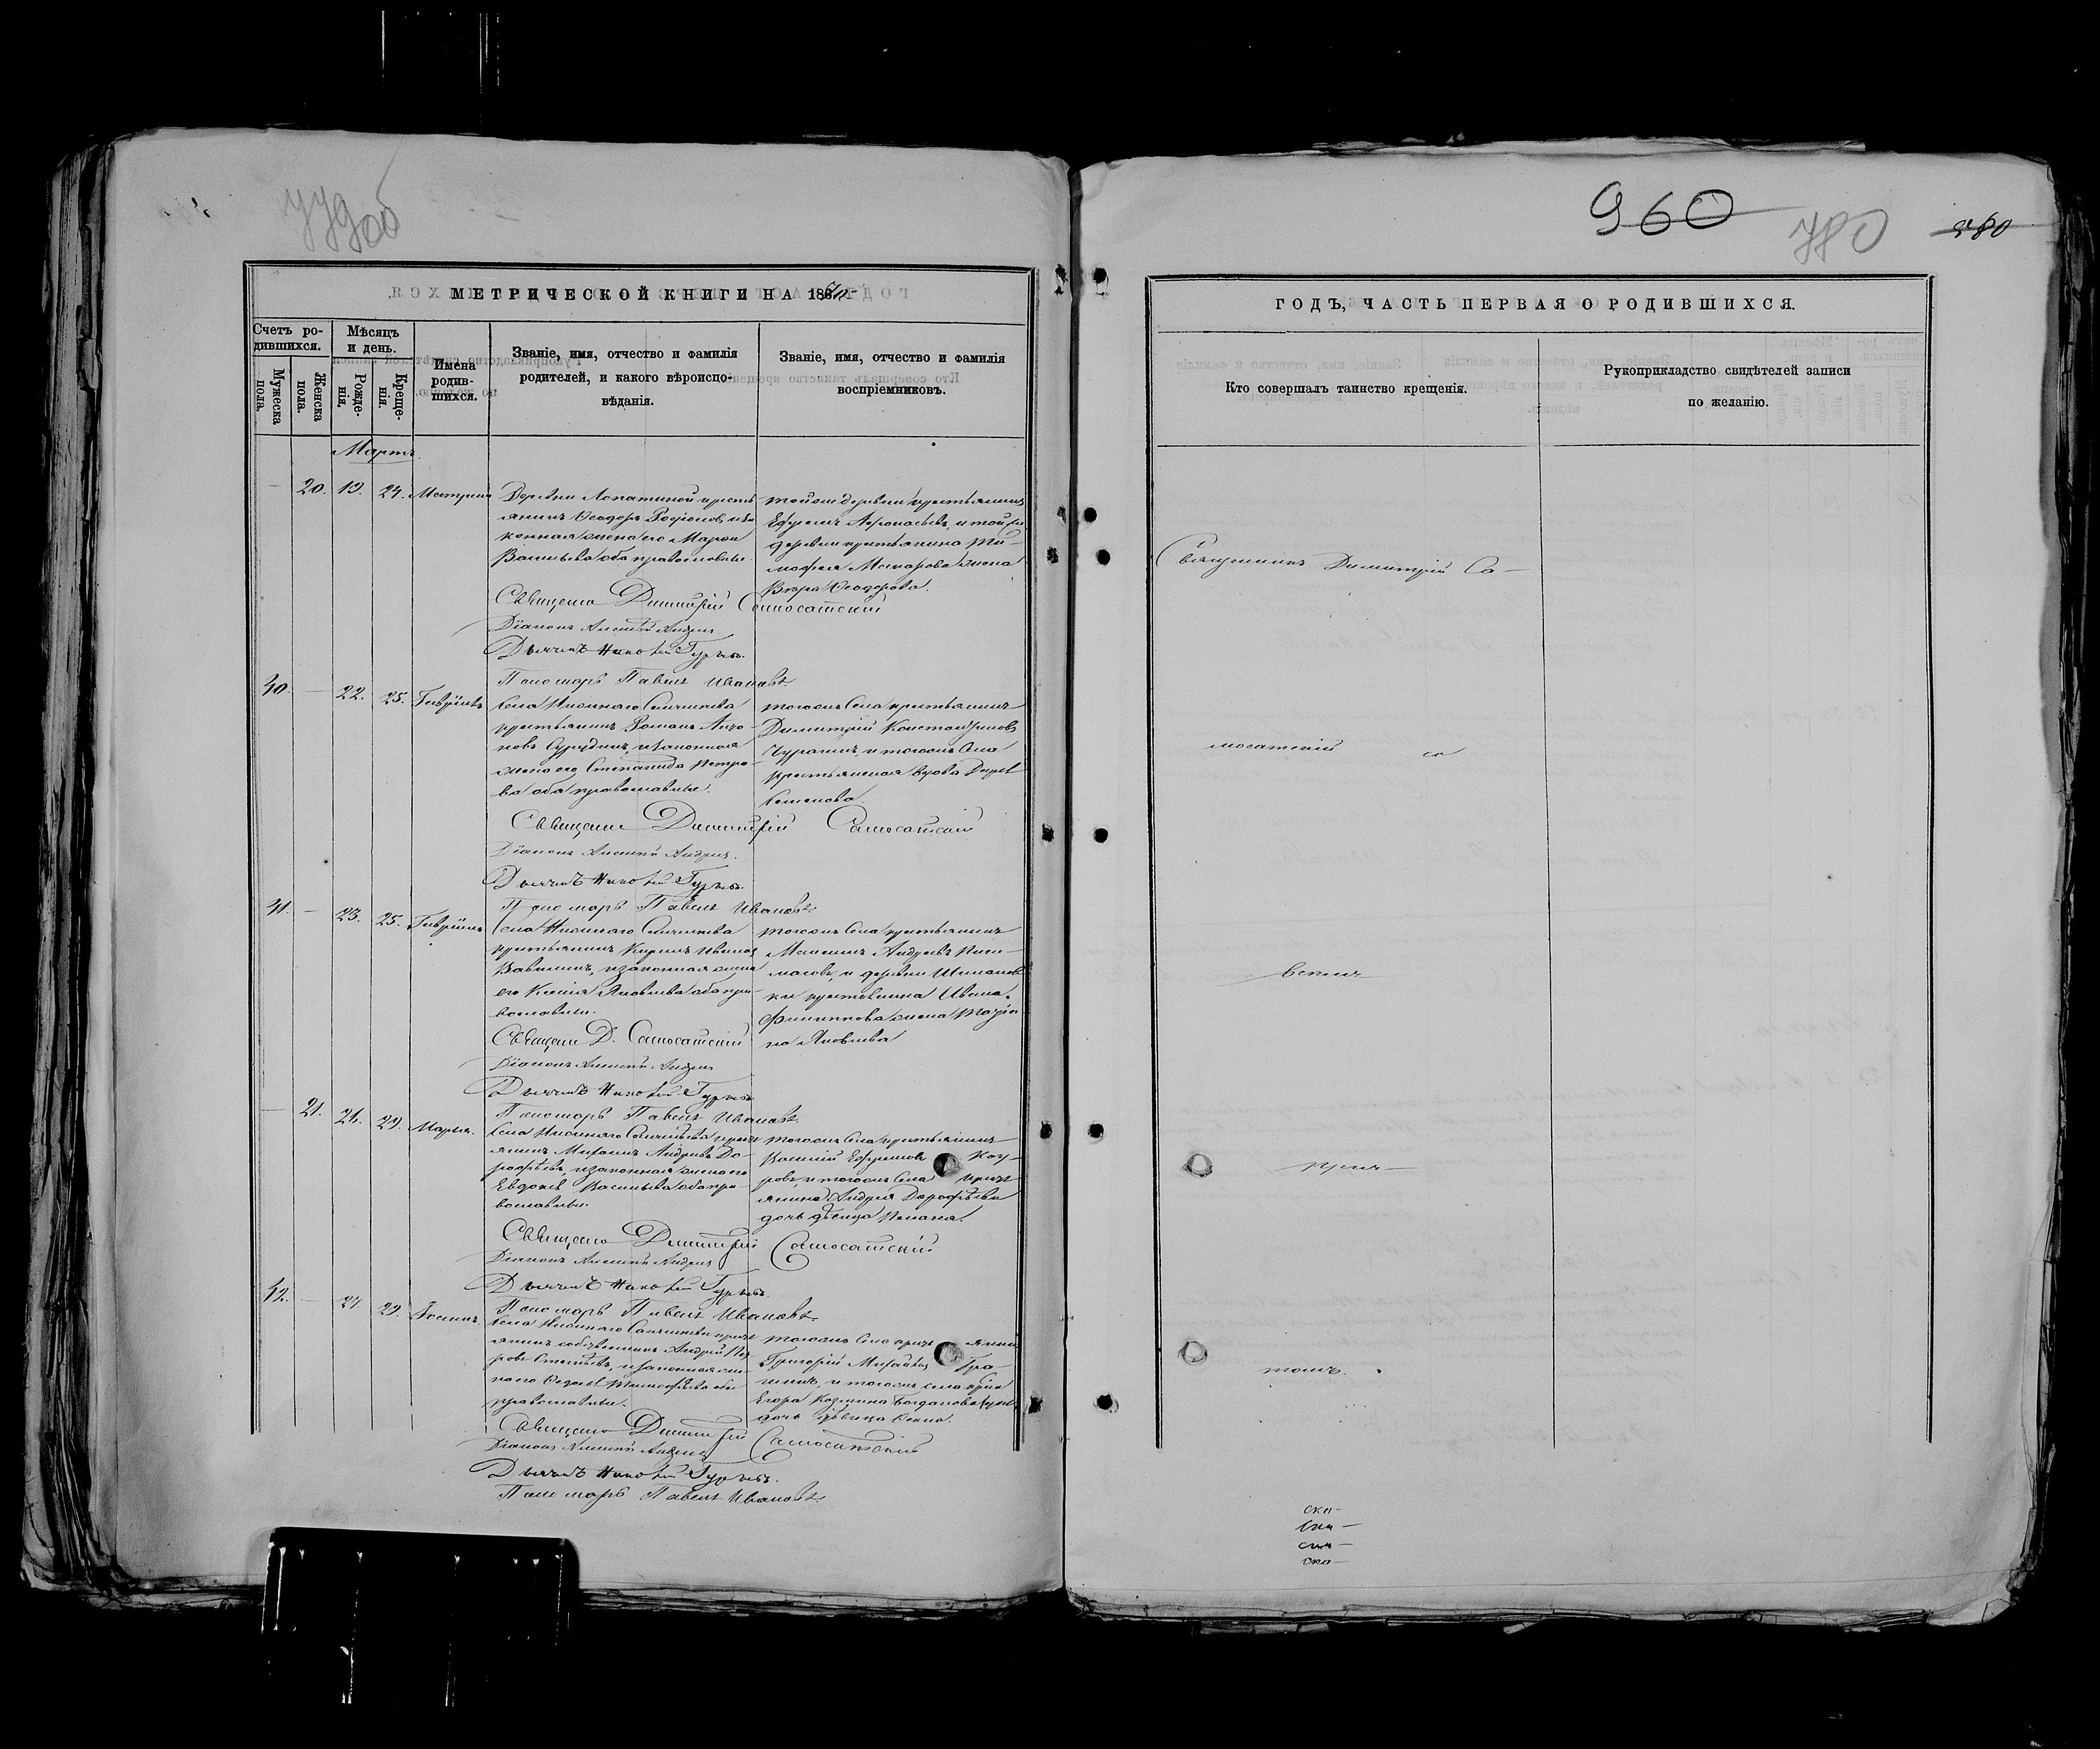 779об
МЕТРИЧЕСКОЙ КНИГИ НА 1870
Счетъ ро-
дившихся.
Мужеска
пола.
Женска
пола.
Мѣсяцъ
и день.
Рожде-
нія.
Креще-
нія.
Имена
родив-
шихся.
Званіе, имя, отчество и фамилія
родителей, и какого вѣроиспо-
вѣданія.
Званіе, имя, отчество и фамилія
воспріемниковъ.
Мартъ
20. 19. 24. Матрона
Деревни Лопатиной кресть
янинъ Ѳеодоръ Родіоновъ иза
конная жена его Марѳа
Васильева оба православные
тойже деревни крестьянинъ
Ефремъ Афонасьевъ, и той же
деревни крестьянина Ти-
мофея Макарова жена
Вѣра Ѳеодорова.
Священ Димитрій Самосатский
Діаконъ Алексѣй Андреев
Дьячекъ Николай Гурьевъ.
Пономарь Павелъ Ивановъ.
40. — 22. 25. Гавріилъ
Села Нижняго Санчелѣева
крестьянинъ Романъ
новъ изаконная
жена его Степанида Петро-
ва оба православные.
тогожъ Села крестьянинъ
Димитрій Константиновъ
Чурашинъ, и тогожъ Села
крестьянская вдова Дарья
Семенова.
Священ Димитрій Самосатский
Діаконъ Алексѣй Андреев.
Дьячекъ Николай Гурьевъ.
Пономарь Павелъ Ивановъ.
41. — 23. 25. Гавріилъ
Села Нижняго Санчелѣева
крестьянинъ Кирилъ Ивановъ
Вавилинъ, изаконная жена
его Ксенія Яковлева оба пра-
вославные.
тогожъ Села крестьянинъ
Андреевъ
и деревни
ки крестьянина Ивана
Филиппова жена Татья
на Яковлева
Священ Д. Самосатский
Діаконъ Алексѣй Андреев
Дьячекъ Николай Гурьевъ
Пономарь Павелъ Ивановъ
— 21. 26. 29. Марья.
Села Нижняго Санчелѣева крест
янинъ Михаилъ Андреевъ До-
рофѣевъ, изаконная жена его
Евдокія Васильева оба пра-
вославные.
тогожъ Села крестьянинъ
Василій Ефремовъ
ровъ, и тогожъ Села крест
янина Андрея Дорофѣева
дочь дѣвица Пелагея.
Священ Димитрій Самосатский
Діаконъ Алексѣй Андреев
Дьячекъ Николай Гурьевъ.
Пономарь Павелъ Ивановъ.
42. — 27. 29.
Села Нижняго Санчелѣева крест
янинъ собственникъ Андрей
изаконная же-
на его Тимофѣева оба
православные.
тогожъ Села крест янинъ
Григорій Михайловъ Гра-
и тогожъ села крес
Егора Козмина Богданова
дочь дѣвица
Священ Димитрій Самосатский
Діаконъ Алексѣй Андреев
Дьячекъ Николай Гурьевъ.
Пономарь Павелъ Ивановъ.
960
780
580
ГОДЪ, ЧАСТЬ ПЕРВАЯ О РОДИВШИХСЯ.
Кто совершалъ таинство крещенія.
Рукоприкладство свидѣтелей записи
по желанію.
Священникъ Димитрій Са-
мосатскій со
всемъ
прич-
томъ.